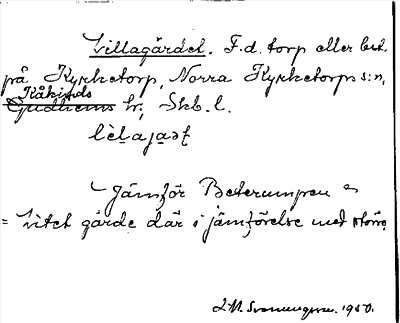 Lillagärdet. F.d. torp eller bet.
på Kyrketorp, Norra Kyrketorps s:n,
Kåkinds
Gudhems hr, Skb. l.
lèlajaət
Jämför Beterumpen
= Litet gärde där i jämförelse med större
1950.